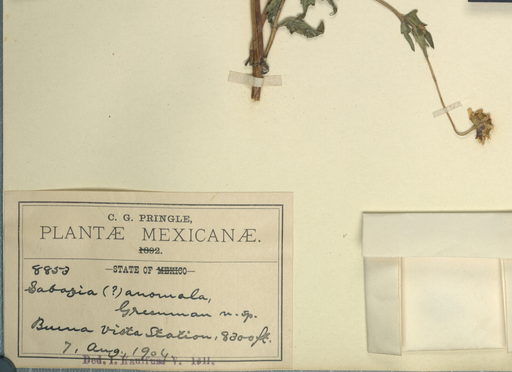 C. G. PRINGLE,
PLANTÆ MEXICANÆ.
1892.
8853 STATE OF MEXICO
Sabazia (?) anomala,
Greenman n. sp.
Buena Vista Station, 8300 ft.
7, Aug., 1904
Ded. I.